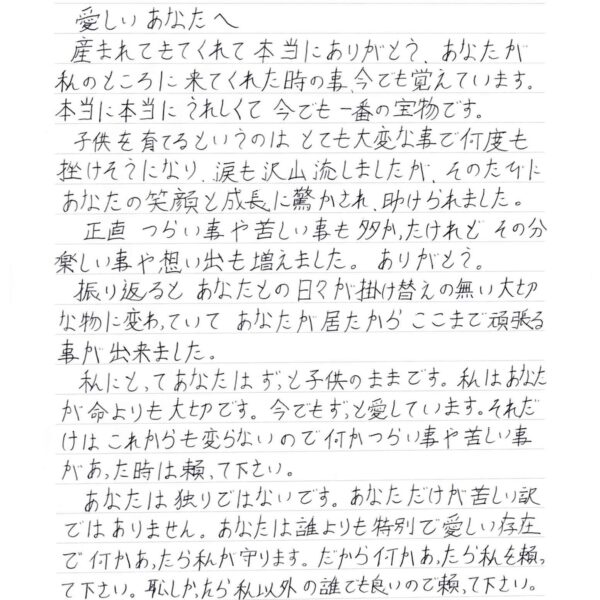 愛しいあなたへ
産まれてきてくれて本当にありがとう、あなたが
私のところに来てくれた時の事、今でも覚えています。
本当に本当にうれしくて今でも一番の宝物です。
子供を育てるというのはとても大変な事で何度も
挫けそうになり、涙も沢山流しましたが、そのたびに
あなたの笑顔と成長に驚かされ、助けられました。
正直つらい事や苦しい事も多かったけれどその分
楽しい事や想い出も増えました。ありがとう。
振り返るとあなたとの日々が掛け替えの無い大切
な物に変わっていてあなたが居たからここまで頑張る
事が出来ました。
私にとってあなたはずっと子供のままです。私はあなた
が命よりも大切です。今でもずっと愛しています。それだ
けはこれからも変らないので何かつらい事や苦しい事
があった時は頼って下さい。
あなたは独りではないです。あなただけが苦しい訳
ではありません。あなたは誰よりも特別で愛しい存在
で何かあったら私が守ります。だから何かあったら私を頼っ
て下さい。恥しかったら私以外の誰でも良いので頼って下さい。